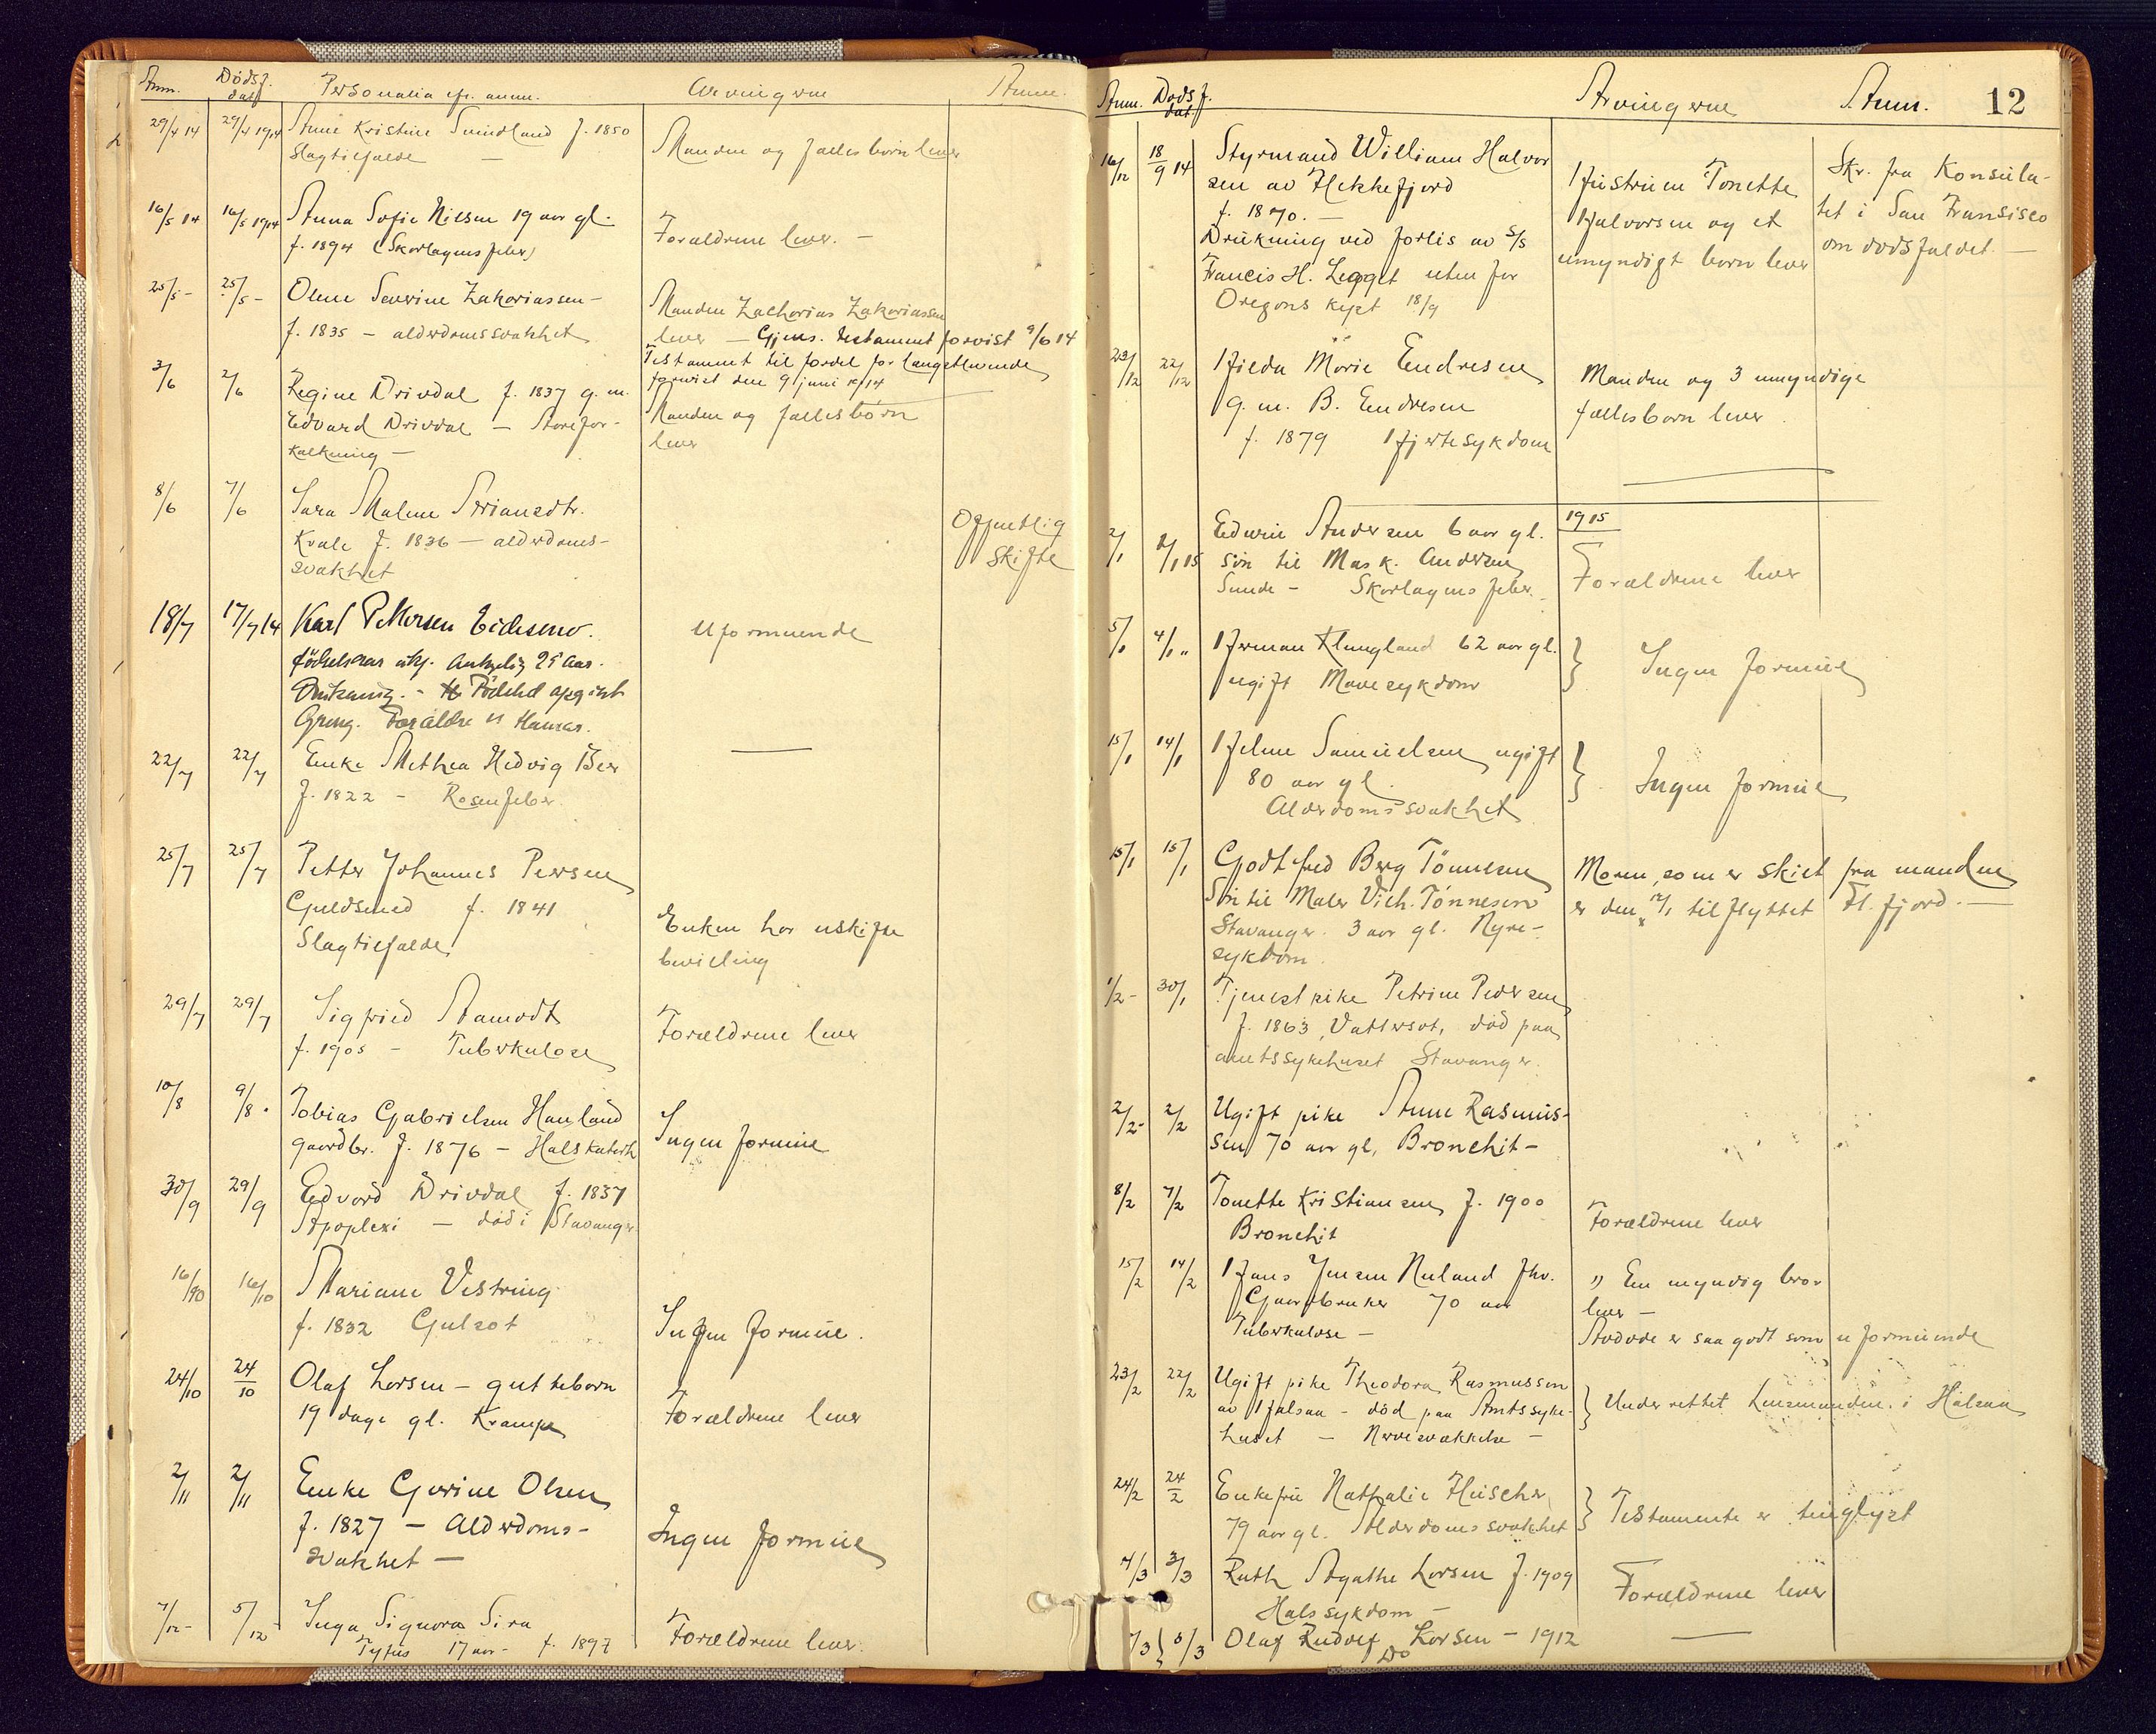 Anm. Dødsf. dat. Personalia Arvingerne Anm.
29/4 14 29/4 1914 Anne Kristine Svindland f. 1850
Slagtilfælde — Manden og fællesbörn lever
16/5 14 16/5 1914 Anna Sofie Nilsen 19 aar gl.
f. 1894 (Skarlagensfeber) Forældrene lever. —
25/5 - 25/5 - Olene Severine Zakariassen -
f. 1835 - alderdomssvakhet
Manden Zacharias Zakariassen
lever — Gjens. testament forvist 9/6 14
Testament til fordel for længstlevende
forvist den 9 juni 1914
3/6 2/6 Regine Drivdal f. 1837 g. m.
Edvard Drivdal — Aarefor-
kalkning —
Manden og fællesbørn
lever
8/6 7/6 Sara Malene Arriansdtr.
Kvale f. 1836 — alderdoms-
svakhet
Offentlig
skifte
18/7 17/7 14 Karl Pettersen
Uformuende
födselsaar Antagelig 25 Aar.
Forældre Hamar.
22/7 22/7 Enke Methea Hedvig Beer
f. 1822 - Rosenfeber.
25/7 25/7 Petter Johannes Persen
Guldsmed f. 1841
Slagtilfælde
Enken har uskifte
bevilling
29/7 29/7 Sigfried Aamodt
f. 1905 - Tuberkulose
Forældrene lever
10/8 9/8. Tobias Gabrielsen Hauland
gaardbr. f. 1876 - Halskatarh
Ingen formue
30/9 29/9 Edvard Drivdal f. 1837
Apoplexi — död i Stavanger
16/10 16/10 Mariane Vestring
f. 1832 Gulsot
Ingen formue.
24/10 24/10 Olaf Larsen - guttebarn
19 dage gl. Krampe
Forældrene lever
2/11 2/11 Enke Gurine Olsen
f. 1827 — Alderdoms-
svakhet —
Ingen formue
7/12 - 5/12 Inga Signora Sira
Tyfus 17 aar - f. 1897
Forældrene lever.
Anm. Dødsf. dat. Arvingerne Anm. 12
16/12 18/9 14 Styrmand William Halvor
sen av Flekkefjord
f. 1870. —
Drukning ved forlis av S/S
Francis H. Legget uten for
Oregons kyst 18/9
Hustruen Tonette
Halvorsen og et
umyndigt barn lever
Skr. fra Konsula-
tet i San Fransisco
om dødsfaldet —
23/12 22/12 Hilda Marie Endresen
g. m. B. Endresen
f. 1879 Hjertesykdom
Manden og 3 umyndige
fællesbarn lever.
1915
2/1 2/1 15 Edwin Andersen 6 aar gl.
søn til Mask. Andersen
Sunde - Skarlagensfeber.
Forældrene lever
5/1 4/1 " Herman Klungland 62 aar gl.
ugift Mavesykdom
Ingen formue
15/1 14/1 Helene Samuelsen ugift
80 aar gl.
Alderdomssvakhet
Ingen formue
15/1 15/1 Godtfred Berg Tönnesen
Søn til Maler Vilh. Tønnesen
Stavanger. 3 aar gl. Nyre-
sykdom.
Moren, som er skilt fra manden
er den tilflyttet Fl. fjord. —
1/2 - 30/1 Tjenestpike Petrine Pedersen
f. 1863, Vattersot, død paa
amtssykehuset Stavanger.
2/2 - 2/2 Ugift pike Anne Rasmus-
sen 70 aar gl, Bronchit -
8/2 7/2 Tonette Kristiansen f. 1900
Bronchit
Forældrene lever
15/2 14/2 Hans Jensen Nuland fhv.
Gaardbruker 70 aar
Tuberkulose —
" En myndig bror
lever —
Avdøde er saa godt som uformuende
23/2 22/2 Ugift pike Theodora Rasmussen
av Halsaa - død paa Amtssyke-
huset — Nervesvækkelse —
Underrettet Lensmanden i Halsaa
24/2 24/2 Enkefru Nathalie Fleischer
79 aar gl. Alderdomssvakhet
Testamente er tinglyst
4/3 3/3 Ruth Agathe Larsen f. 1909
Halssykdom —
Forældrene lever
7/3 5/3 Olaf Rudolf Larsen - 1912
Do